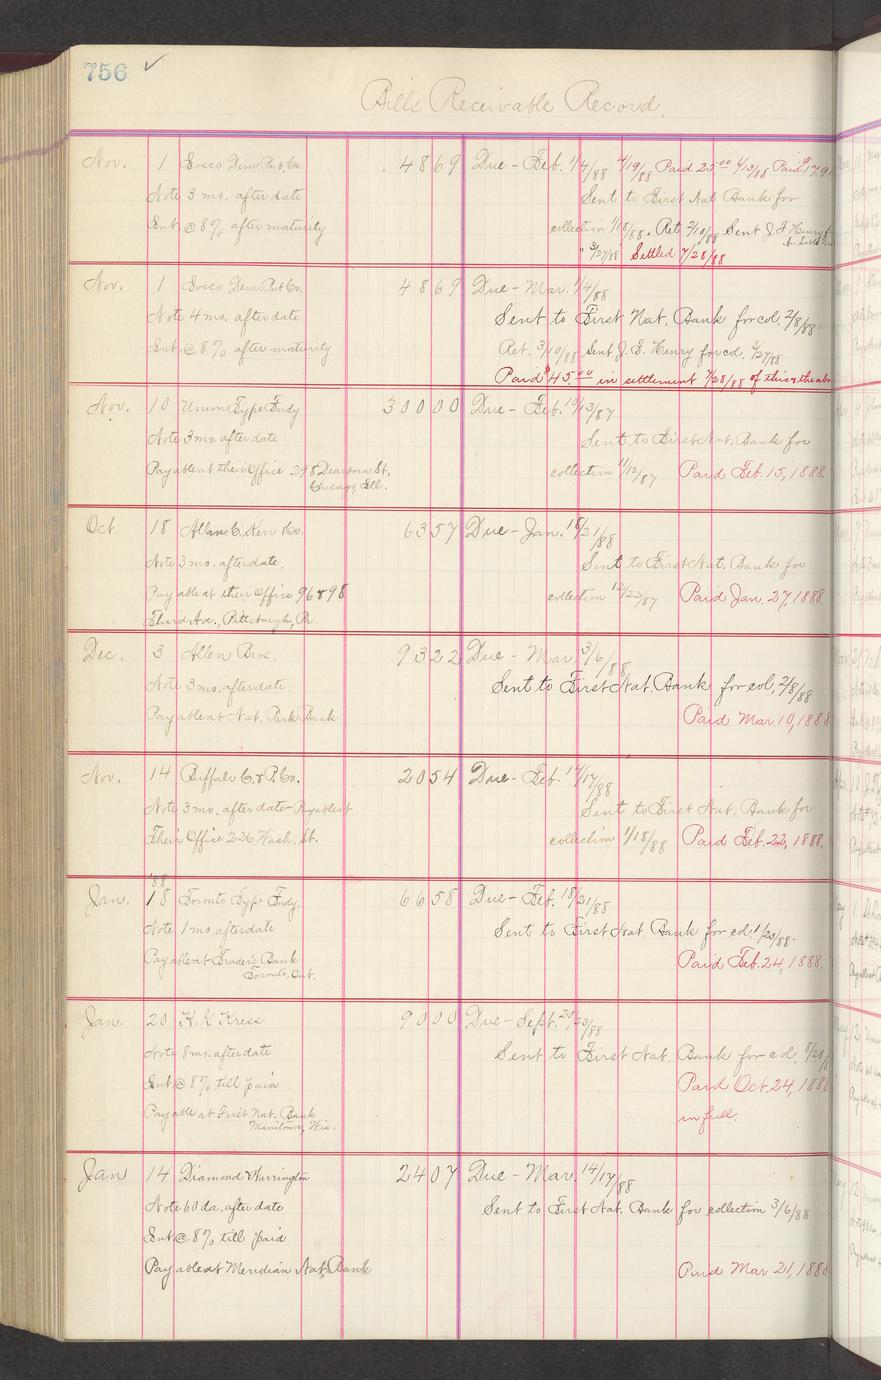 756 ✓
Bills Receivable Record.
Nov. 1 Socco Dem Pub. Co. 4869 Due - Feb. 1/4/88 4/19/88 Paid 25.00 6/13/88 Paid $17.9
Note 3 mo. after date Sent to First Nat. Bank for
Int. @ 8% after maturity collection 1/18/88. Ret 2/10/88 Sent J. F. Henry
" 3/27/88 Settled 7/28/88
Nov. 1 Socco Dem Pub Co. 4869 Due - Mar. 1/4/88
Note 4 mo. after date Sent to First Nat. Bank for col. 2/8/88.
Int. @ 8% after maturity Ret. 3/10/88 Sent J. F. Henry for col. 3/27/88
Paid $45.00 in settlement 7/28/88 of this & the abo
Nov. 10 Union Type Fndy 30000 Due - Feb. 10/13/87
Note 3 mo. after date Sent to First Nat. Bank for
Payable at their Office 298 Dearborn St. collection 11/12/87 Paid Feb. 15, 1888.
Chicago, Ill.
Oct. 18 Allan C. Kerr & Co. 6357 Due - Jan. 18/21/88
Note 3 mo. after date. Sent to First Nat. Bank for
Payable at their Office 96 & 98 collection 12/22/87 Paid Jan. 27, 1888.
Third Ave., Pittsburgh, Pa.
Dec. 3 Allen Bros. 9322 Due - Mar. 3/6/88
Note 3 mo. after date Sent to First Nat. Bank for col. 2/8/88
Payable at Nat. Park Bank Paid Mar. 10, 1888
Nov. 14 Buffalo C. & P. Co. 2054 Due - Feb. 14/17/88
Note 3 mo. after date - Payable at Sent to First Nat. Bank for
Their Office 226 Wash. St. collection 1/18/88 Paid Feb. 22, 1888.
'88
Jan. 18 Toronto Type Fndy. 6658 Due - Feb. 18/21/88
Note 1 mo. after date Sent to First Nat. Bank for col 1/23/88.
Payable at Trader's Bank Paid Feb. 24, 1888.
Toronto, Ont.
Jan. 20 K. K. Kress 9000 Due - Sept. 20/23/88
Note 8 mo. after date Sent to First Nat. Bank for col. 8/28/8
Int @ 8% till paid Paid Oct. 24, 1888
Payable at First Nat. Bank in full.
Manitowoc, Wis.
Jan 14 Diamond & Warrington 2407 Due - Mar. 14/17/88
Note 60 da. after date Sent to First Nat. Bank for collection 3/6/88
Int. @ 8% till paid
Payable at Meridian Nat. Bank Paid Mar 21, 1888